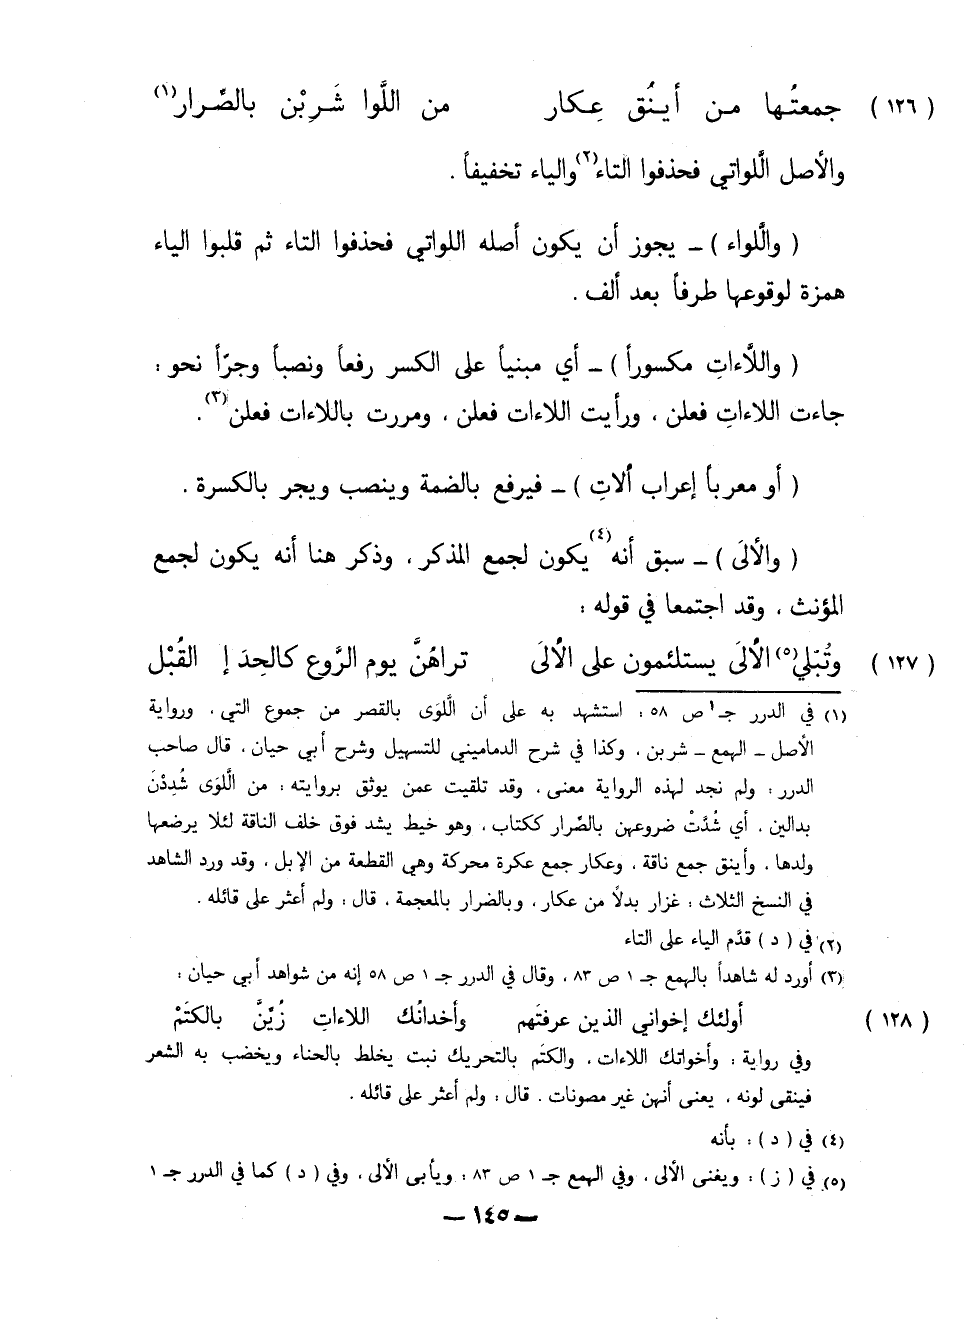 ( ١٢٦ ) جمعتُها من أينُق عِكار من اللَّوا شَرِبْن بالصِّرار(١)
والأصل اللَّواتي فحذفوا التاء(٢) والياء تخفيفاً .
( واللَّواء ) ــ يجوز أن يكون أصله اللواتي فحذفوا التاء ثم قلبوا الياء
همزة لوقوعها طرفاً بعد ألف .
( واللَّاءاتِ مكسوراً ) ــ أي مبنياً على الكسر رفعاً ونصباً وجرّاً نحو :
جاءت اللاءاتِ فعلن ، ورأيت اللاءات فعلن ، ومررت باللاءات فعلن(٣) .
( أو معرباً إعراب أُلاتِ ) ــ فيرفع بالضمة وينصب ويجر بالكسرة .
( والأُلَى ) ــ سبق أنه(٤) يكون لجمع المذكر ، وذكر هنا أنه يكون لجمع
المؤنث ، وقد اجتمعا في قوله :
( ١٢٧ ) وتُبْلي(٥) الأُلَى يستلئمون على الأُلَى تراهُنَّ يوم الرَّوع كالحِدَ إِ القُبْل
(١) في الدرر جـ ١ ص ٥٨ : استشهد به على أن اللَّوَى بالقصر من جموع التي ، ورواية
الأصل ــ الهمع ــ شربن ، وكذا في شرح الدماميني للتسهيل وشرح أبي حيان ، قال صاحب
الدرر : ولم نجد لهذه الرواية معنى ، وقد تلقيت عمن يوثق بروايته : من اللَّوَى شُدِدْنَ
بدالين ، أي شُدَّتْ ضروعهن بالصِّرار ككتاب ، وهو خيط يشد فوق خلف الناقة لئلا يرضعها
ولدها ، وأينق جمع ناقة ، وعكار جمع عكرة محركة وهي القطعة من الإبل ، وقد ورد الشاهد
في النسخ الثلاث : غزار بدلاً من عكار ، وبالضرار بالمعجمة ، قال : ولم أعثر على قائله .
(٢) في ( د ) قدَّم الياء على التاء
(٣) أورد له شاهداً بالهمع جـ ١ ص ٨٣ ، وقال في الدرر جـ ١ ص ٥٨ إنه من شواهد أبي حيان :
( ١٢٨ ) أولئك إخواني الذين عرفتَهم وأخدانُك اللاءاتِ زُيِّنَّ بالكَتَمْ
وفي رواية : وأخواتك اللاءات ، والكتَم بالتحريك نبت يخلط بالحناء ويخضب به الشعر
فينقى لونه ، يعنى أنهن غير مصونات . قال : ولم أعثر على قائله .
(٤) في ( د ) : بأنه
(٥) في ( ز ) : ويغنى الألى ، وفي الهمع جـ ١ ص ٨٣ : ويأبى الألى ، وفي ( د ) كما في الدرر جـ ١
ــ ١٤٥ ــ